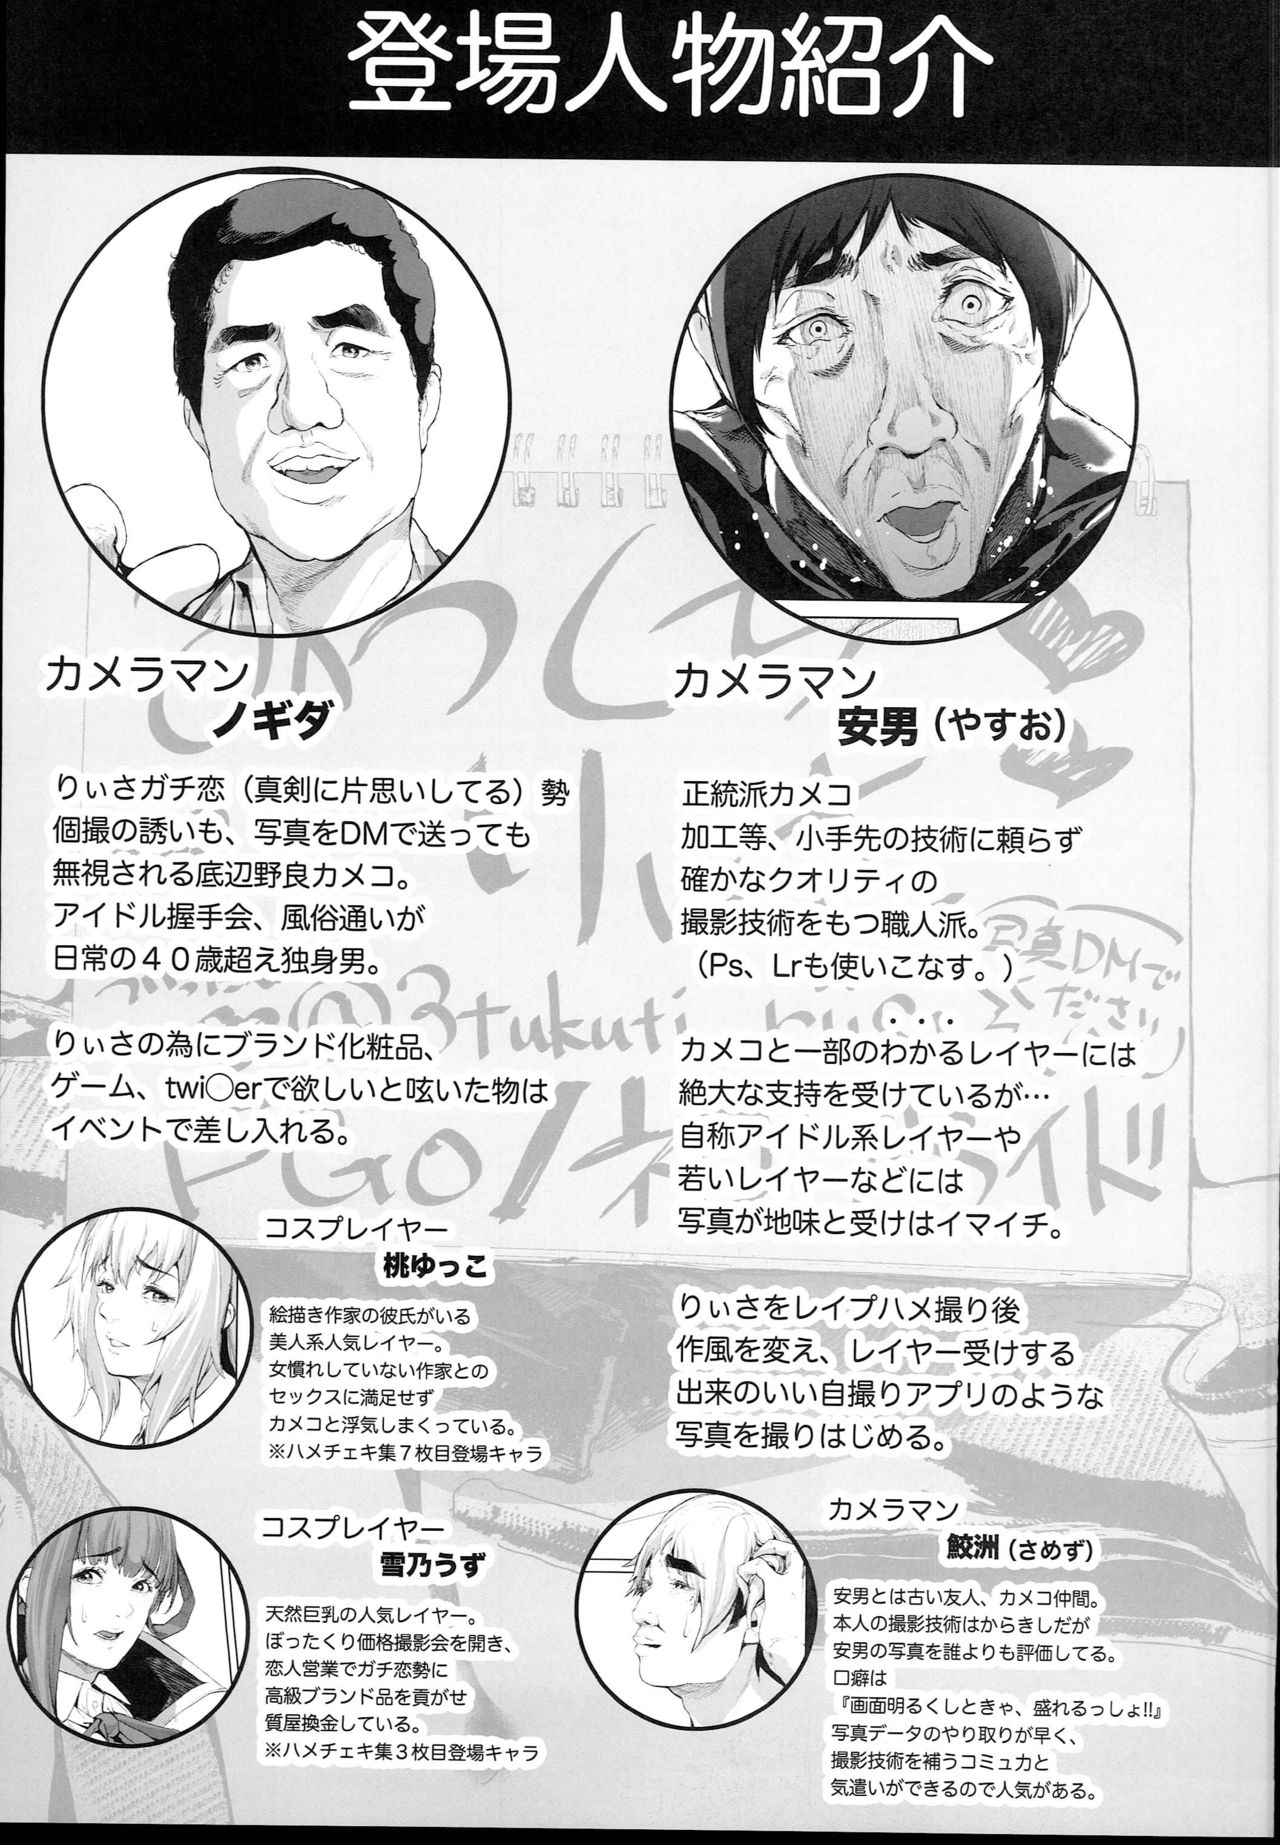 登場人物紹介
カメラマン
ノギダ
りぃさガチ恋（真剣に片思いしてる）勢
個撮の誘いも、写真をDMで送っても
無視される底辺野良カメコ。
アイドル握手会、風俗通いが
日常の４０歳超え独身男。
りぃさの為にブランド化粧品、
ゲーム、twi〇erで欲しいと呟いた物は
イベントで差し入れる。
カメラマン
安男（やすお）
正統派カメコ
加工等、小手先の技術に頼らず
確かなクオリティの
撮影技術をもつ職人派。
（Ps、Lrも使いこなす。）
カメコと一部のわかるレイヤーには
絶大な支持を受けているが…
自称アイドル系レイヤーや
若いレイヤーなどには
写真が地味と受けはイマイチ。
りぃさをレイプハメ撮り後
作風を変え、レイヤー受けする
出来のいい自撮りアプリのような
写真を撮りはじめる。
コスプレイヤー
桃ゆっこ
絵描き作家の彼氏がいる
美人系人気レイヤー。
女慣れしていない作家との
セックスに満足せず
カメコと浮気しまくっている。
※ハメチェキ集７枚目登場キャラ
コスプレイヤー
雪乃うず
天然巨乳の人気レイヤー。
ぼったくり価格撮影会を開き、
恋人営業でガチ恋勢に
高級ブランド品を貢がせ
質屋換金している。
※ハメチェキ集３枚目登場キャラ
カメラマン
鮫洲（さめず）
安男とは古い友人、カメコ仲間。
本人の撮影技術はからきしだが
安男の写真を誰よりも評価してる。
口癖は
『画面明るくしときゃ、盛れるっしょ!!』
写真データのやり取りが早く、
撮影技術を補うコミュ力と
気遣いができるので人気がある。
写真DMで
ください